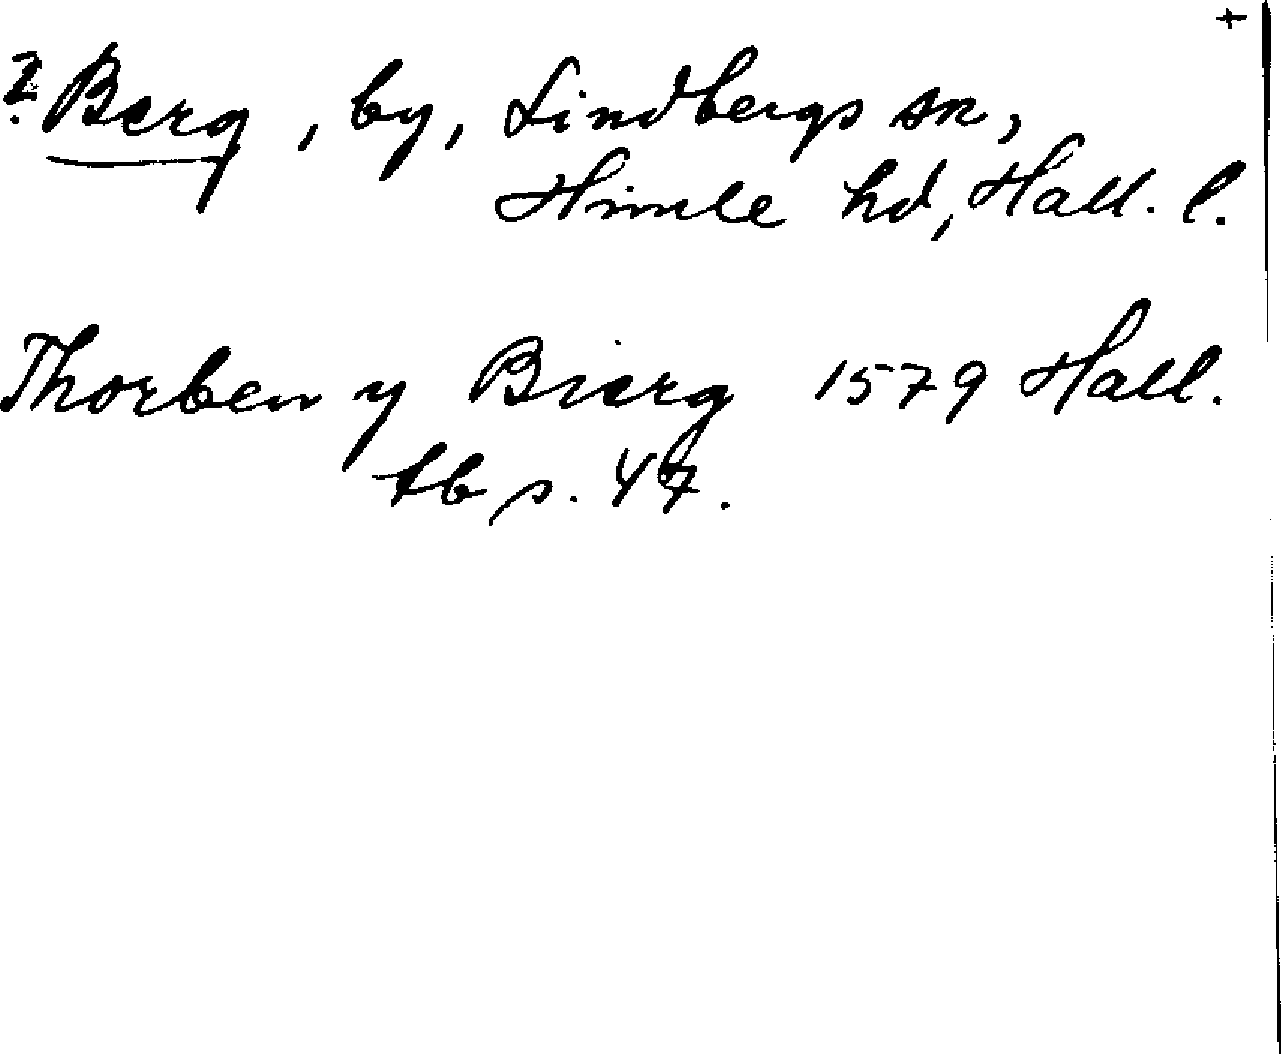 +
? Berg, by, Lindbergs sn,
Himle hd, Hall. l.
Thorben y Bierg 1579 Hall.
tb s. 47.